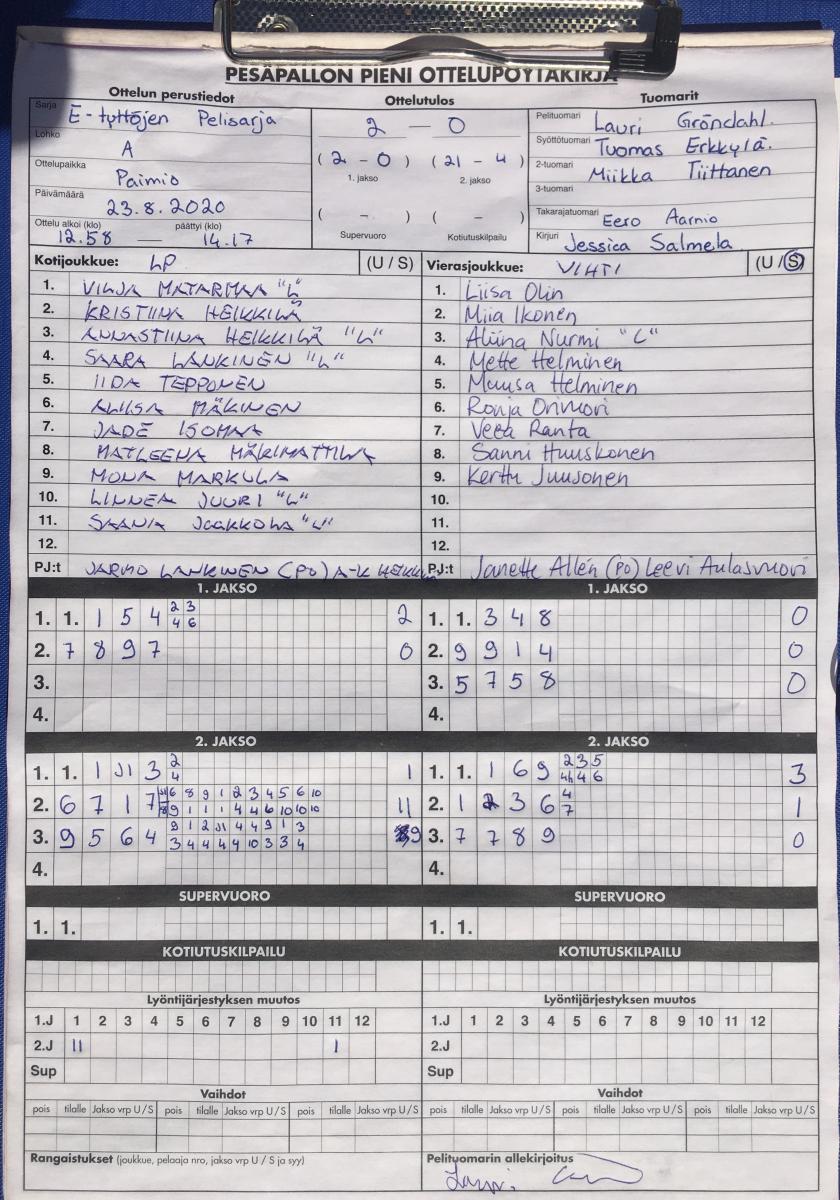 PESÄPALLON PIENI OTTELUPÖYTÄKIRJA
Ottelun perustiedot
Sarja E-tyttöjen Pelisarja
Lohko A
Ottelupaikka Paimio
Päivämäärä 23.8.2020
Ottelu alkoi (klo) päättyi (klo)
12.58 — 14.17
Ottelutulos
2 — 0
(2 - 0) (21 - 4)
1. jakso 2. jakso
( - ) ( - )
Supervuoro Kotiutuskilpailu
Tuomarit
Pelituomari Lauri Gröndahl.
Syöttötuomari Tuomas Erkkylä.
2-tuomari Miikka Tiittanen
3-tuomari
Takarajatuomari Eero Aarnio
Kirjuri Jessica Salmela
Kotijoukkue: LP (U / S)
1. VILJA MATARMAA "L"
2. KRISTIINA HEIKKILÄ
3. ANNASTIINA HEIKKILÄ "L"
4. SAARA LANKINEN "L"
5. IIDA TEPPONEN
6. MÄKINEN
7. JADE ISOMAA
8. MATLEENA MÄKIMATTILA
9. MONA MARKULA
10. LINNEA JUURI "L"
11. SAANA JAAKKOLA "L"
12.
PJ:t JARMO LANKINEN (PO) A-K HEIKKILÄ
Vierasjoukkue: VIHTI (U / S)
1. Liisa Olin
2. Miia Ikonen
3. Nurmi "C"
4. Mette Helminen
5. Muusa Helminen
6. Ronja
7. Veea Ranta
8. Sanni Huuskonen
9. Kerttu Juusonen
10.
11.
12.
PJ:t Janette Allén (PO) Leevi Aulasvuori
1. JAKSO
1. 1. 1 5 4 2 3 2
4 6
2. 7 8 9 7 0
3.
4.
1. JAKSO
1. 1. 3 4 8 0
2. 9 9 1 4 0
3. 5 7 5 8 0
4.
2. JAKSO
1. 1. 1 J1 3 2 1
4
2. 6 7 1 7 6 8 9 1 2 3 4 5 6 10 11
9 1 1 1 4 4 6 10 10 10
3. 9 5 6 4 9 1 2 J1 4 4 9 1 3 9
3 4 4 4 4 10 3 3 4
4.
2. JAKSO
1. 1. 1 6 9 2 3 5 3
4 4 6
2. 1 2 3 6 4 1
7
3. 7 7 8 9 0
4.
SUPERVUORO
1. 1.
SUPERVUORO
1. 1.
KOTIUTUSKILPAILU
KOTIUTUSKILPAILU
Lyöntijärjestyksen muutos
1.J 1 2 3 4 5 6 7 8 9 10 11 12
2.J 11 1
Sup
Lyöntijärjestyksen muutos
1.J 1 2 3 4 5 6 7 8 9 10 11 12
2.J
Sup
Vaihdot
pois tilalle Jakso vrp U / S pois tilalle Jakso vrp U / S pois tilalle Jakso vrp U / S
Vaihdot
pois tilalle Jakso vrp U / S pois tilalle Jakso vrp U / S pois tilalle Jakso vrp U / S
Rangaistukset (joukkue, pelaaja nro, jakso vrp U / S ja syy)
Pelituomarin allekirjoitus